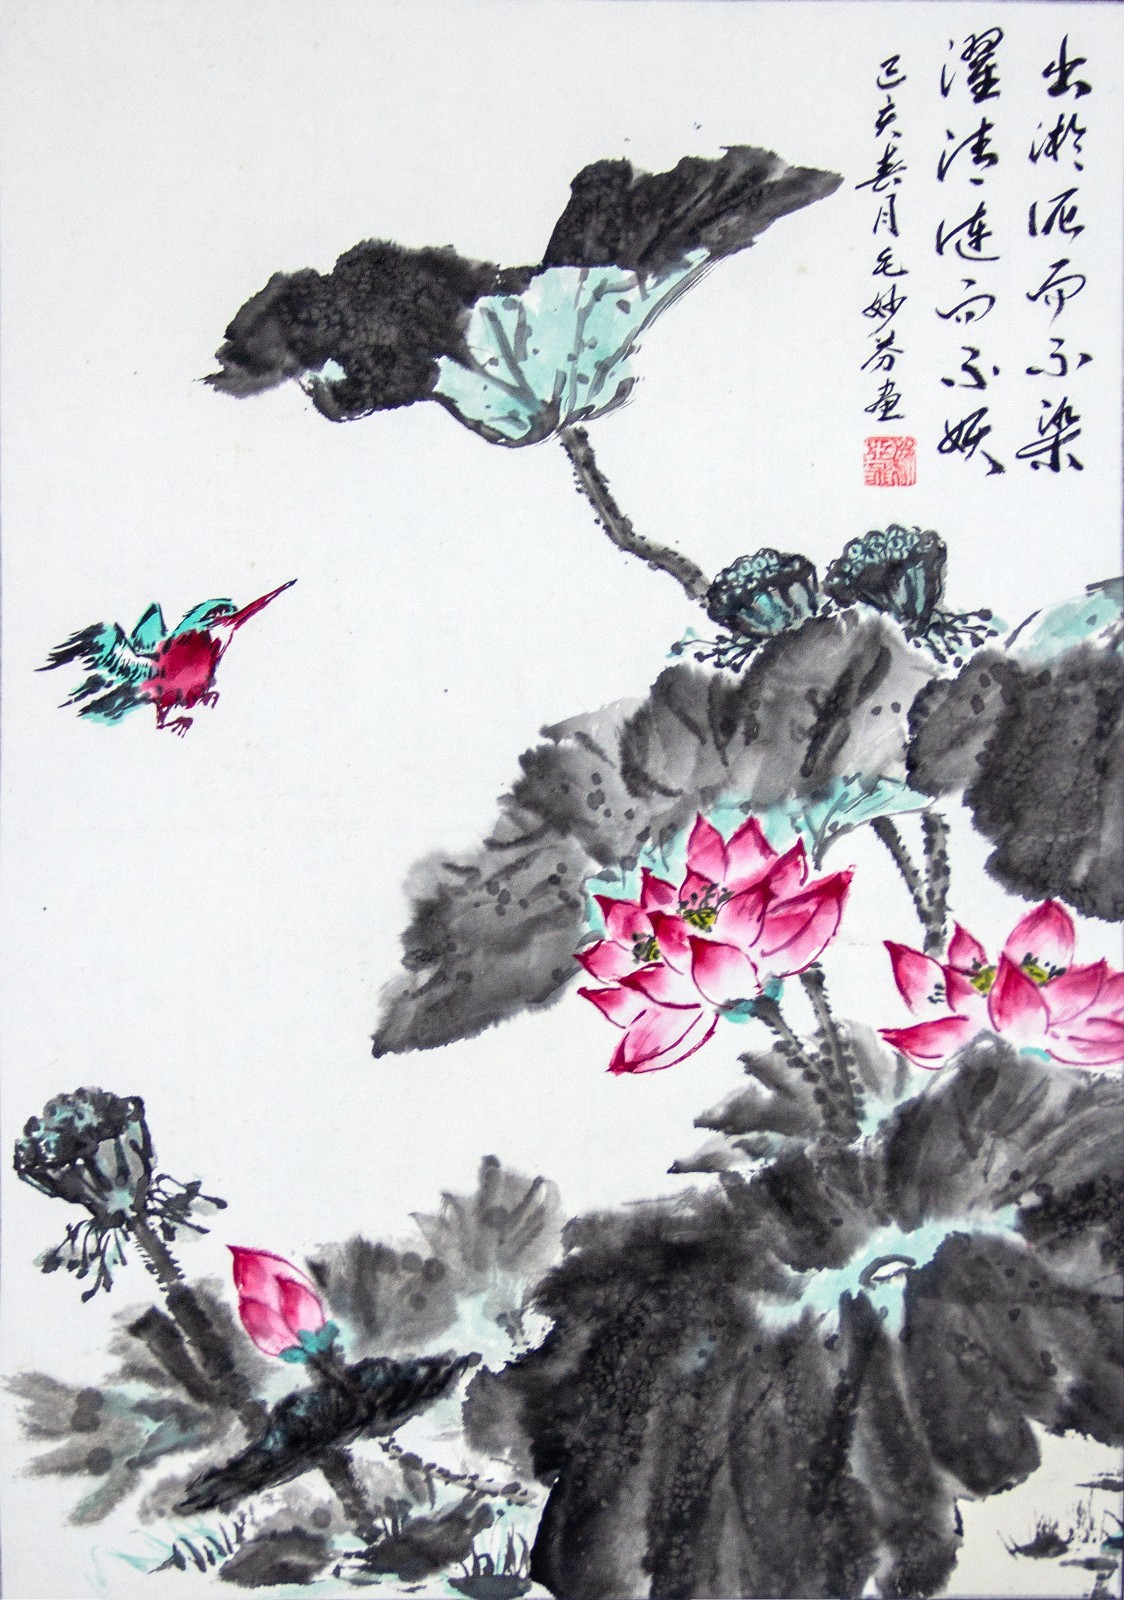 出淤泥而不染
濯清涟而不妖
己亥春月毛妙芬画